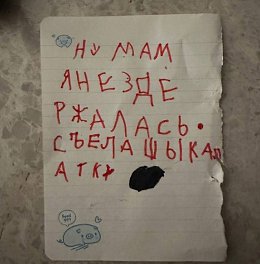 НУ МАМ
Я НЕ ЗДЕ
РЖАЛАСЬ.
СЪЕЛА ШЫКАЛ
АТКУ